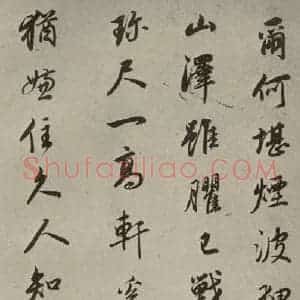 爾何堪煙波
山澤雖臞已戰
珎尺一高軒
猶嫌住久人知
Shufaziliao.COM